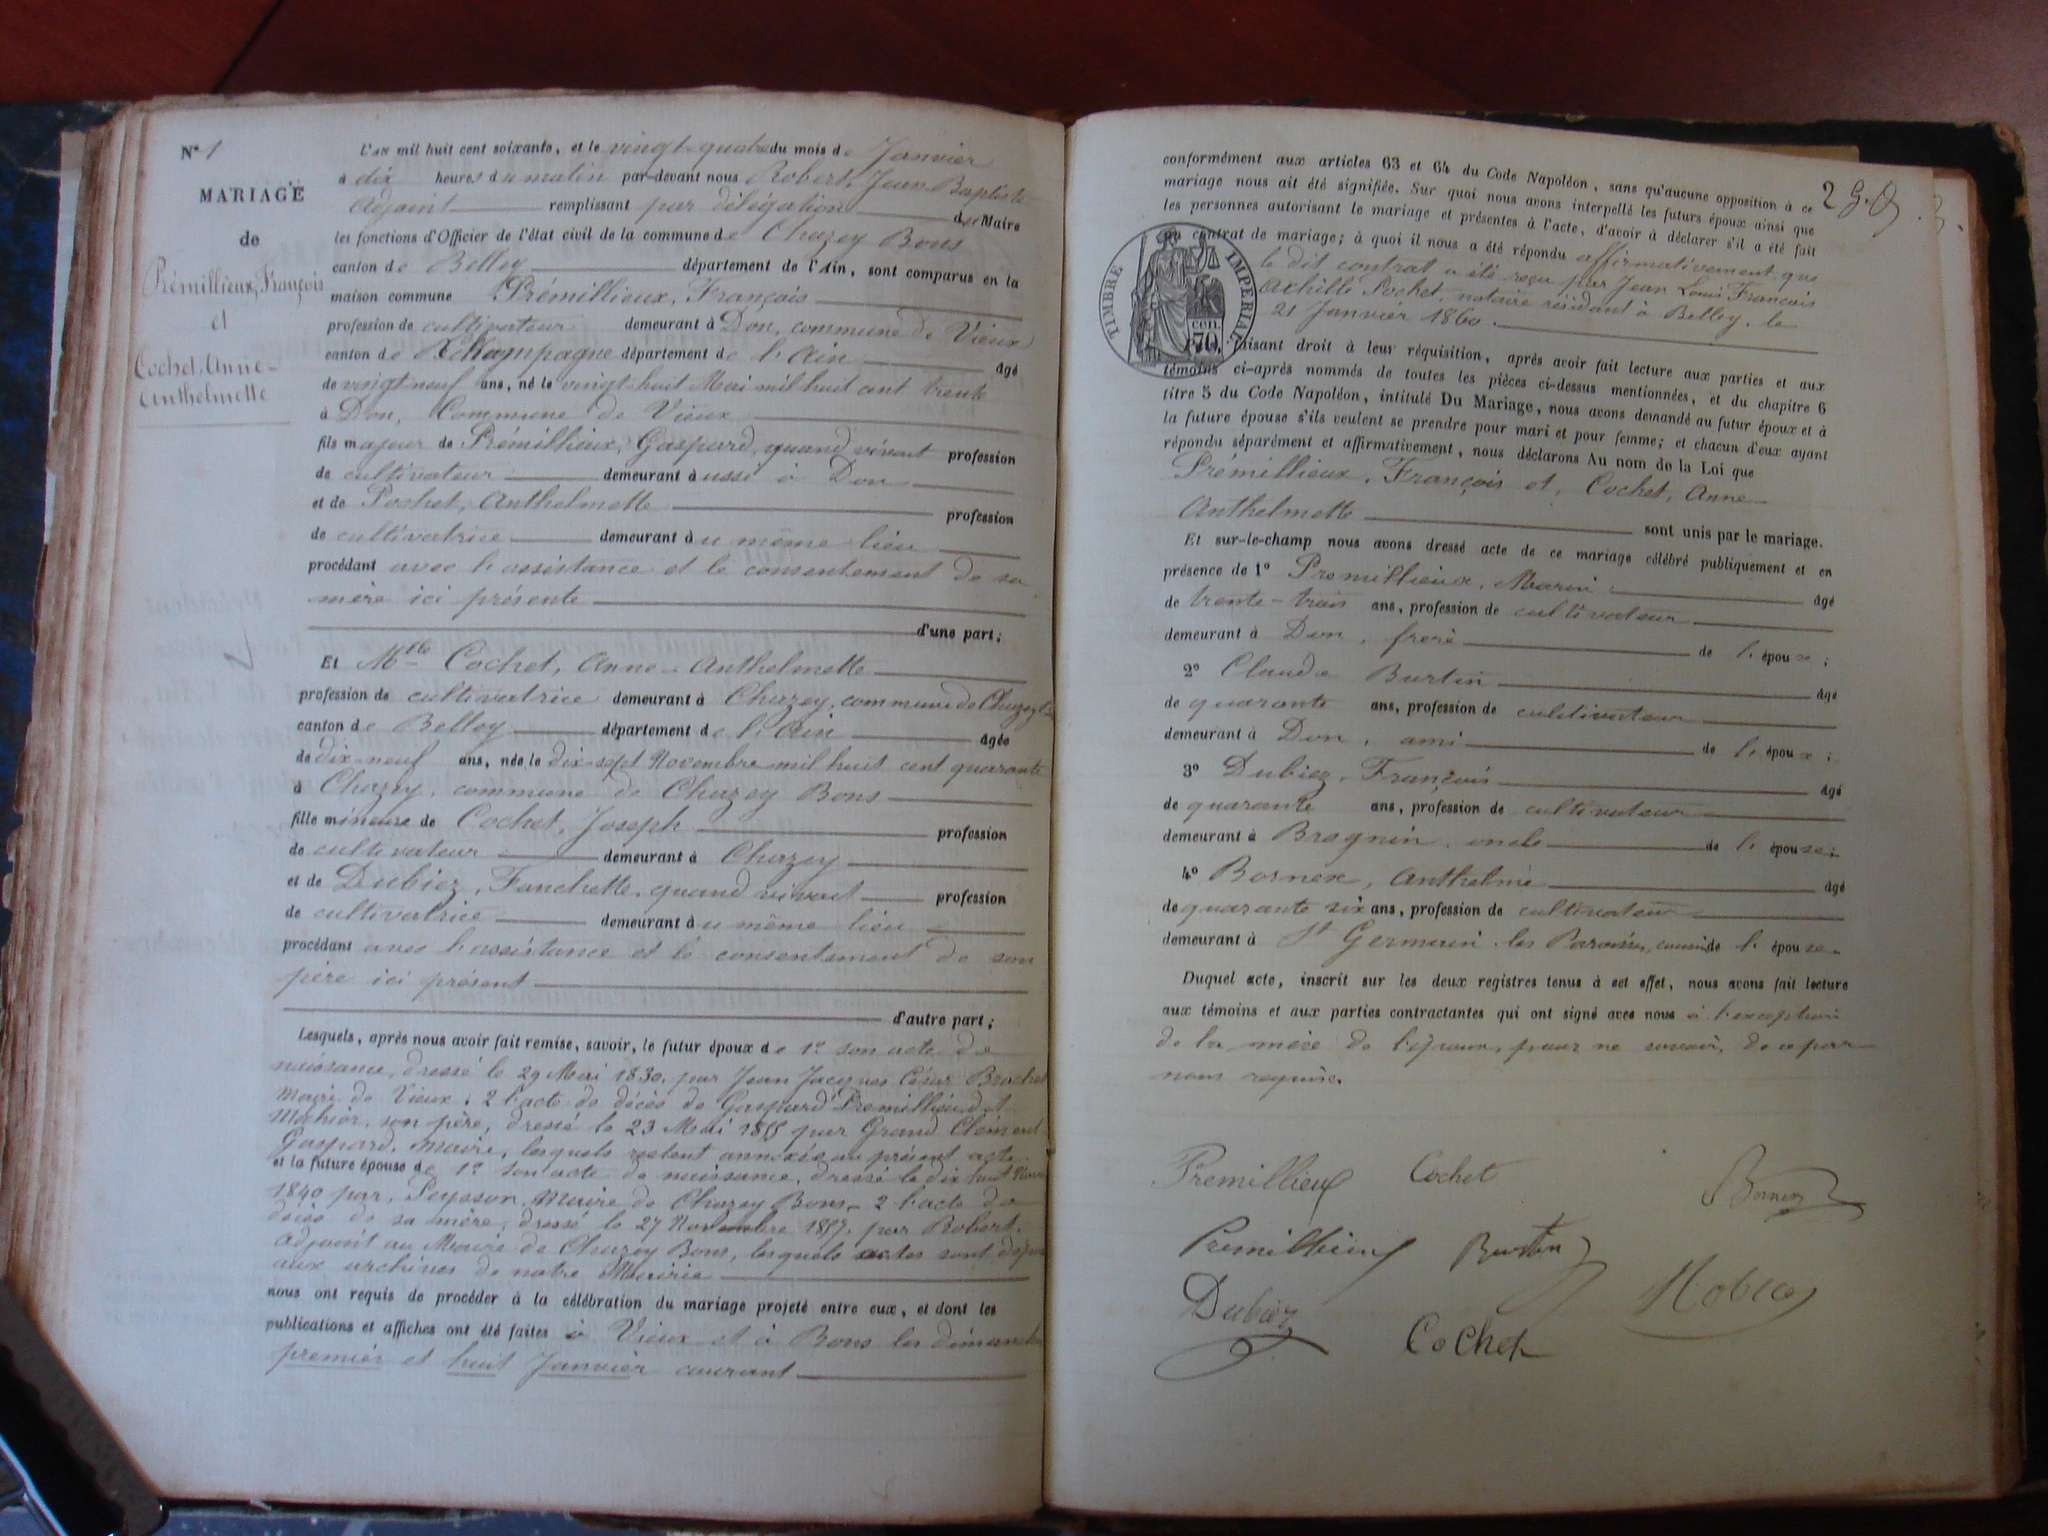 N° 1
MARIAGE
de
Prémillieux, François
et
Cochet, Anne-
Anthelmette
L'an mil huit cent soixante, et le vingt-quatre du mois de Janvier
à dix heures du matin par-devant nous Robert, Jean Baptiste
Adjoint remplissant par délégation de Maire
les fonctions d'Officier de l'état civil de la commune de Chazey Bons
canton de Belley département de l'Ain, sont comparus en la
maison commune Prémillieux, François
profession de cultivateur demeurant à Don, commune de Vieux
canton de Champagne département de l'Ain âgé
de vingt-neuf ans, né le vingt-huit Mai mil huit cent trente
à Don, Commune de Vieux
fils majeur de Prémillieux, Gaspard, quand vivait profession
de cultivateur demeurant aussi à Don
et de Pochet, Anthelmette profession
de cultivatrice demeurant au même lieu
procédant avec l'assistance et le consentement de sa
mère ici présente
d'une part;
Et Mlle Cochet, Anne-Anthelmette
profession de cultivatrice demeurant à Chazey, commune de Chazey
canton de Belley département de l'Ain âgée
de dix-neuf ans, née le dix-sept Novembre mil huit cent quarante
à Chazey, commune de Chazey Bons
fille mineure de Cochet, Joseph profession
de cultivateur demeurant à Chazey
et de Dubiez, Fanchette, quand vivait profession
de cultivatrice demeurant au même lieu
procédant avec l'assistance et le consentement de son
père ici présent
d'autre part;
Lesquels, après nous avoir fait remise, savoir, le futur époux de 1° son acte de
naissance, dressé le 29 Mai 1830, par Jean Jacques César Brochet
Maire de Vieux; 2 l'acte de décès de Gaspard Premillieu dit
Mechior, son père, dressé le 23 Mai 1855 par Grand Clément
Gaspard, Maire, lesquels restent annexés au présent acte
et la future épouse de 1° son acte de naissance, dressé le dix huit
1840 par Peysson, Maire de Chazey Bons, 2 l'acte de
décès de sa mère, dressé le 27 Novembre 1857, par Robert,
adjoint au Maire de Chazey Bons, lesquels actes sont
aux archives de notre Mairie
nous ont requis de procéder à la célébration du mariage projeté entre eux, et dont les
publications et affiches ont été faites à Vieux et à Bons les dimanches
premier et huit Janvier courant
2
conformément aux articles 63 et 64 du Code Napoléon, sans qu'aucune opposition à ce
mariage nous ait été signifiée. Sur quoi nous avons interpellé les futurs époux ainsi que
les personnes autorisant le mariage et présentes à l'acte, d'avoir à déclarer s'il a été fait
un contrat de mariage; à quoi il nous a été répondu affirmativement que
le dit contrat a été reçu par Jean Louis François
Achille Pochet, notaire résidant à Belley, le
21 Janvier 1860.
TIMBRE IMPERIAL
cen. 70
faisant droit à leur réquisition, après avoir fait lecture aux parties et aux
témoins ci-après nommés de toutes les pièces ci-dessus mentionnées, et du chapitre 6
titre 5 du Code Napoléon, intitulé Du Mariage, nous avons demandé au futur époux et à
la future épouse s'ils veulent se prendre pour mari et pour femme; et chacun d'eux ayant
répondu séparément et affirmativement, nous déclarons Au nom de la Loi que
Prémillieux, François et, Cochet, Anne
Anthelmette sont unis par le mariage.
Et sur-le-champ nous avons dressé acte de ce mariage célébré publiquement et en
présence de 1° Premillieux, Marin âgé
de trente-trois ans, profession de cultivateur
demeurant à Don, frère de l'époux;
2° Claude Burtin âgé
de quarante ans, profession de cultivateur
demeurant à Don, ami de l'époux;
3° Dubiez, François âgé
de quarante ans, profession de cultivateur
demeurant à Bregnin, oncle de l'épouse;
4° Bornex, Anthelme âgé
de quarante six ans, profession de cultivateur
demeurant à St Germain les Paroisses, cousin de l'épouse
Duquel acte, inscrit sur les deux registres tenus à cet effet, nous avons fait lecture
aux témoins et aux parties contractantes qui ont signé avec nous à l'exception
de la mère de l'époux, pour ne savoir, de ce par
nous requise.
Premillieux Cochet Bornex
Premillieux Burtin
Dubiez Cochet